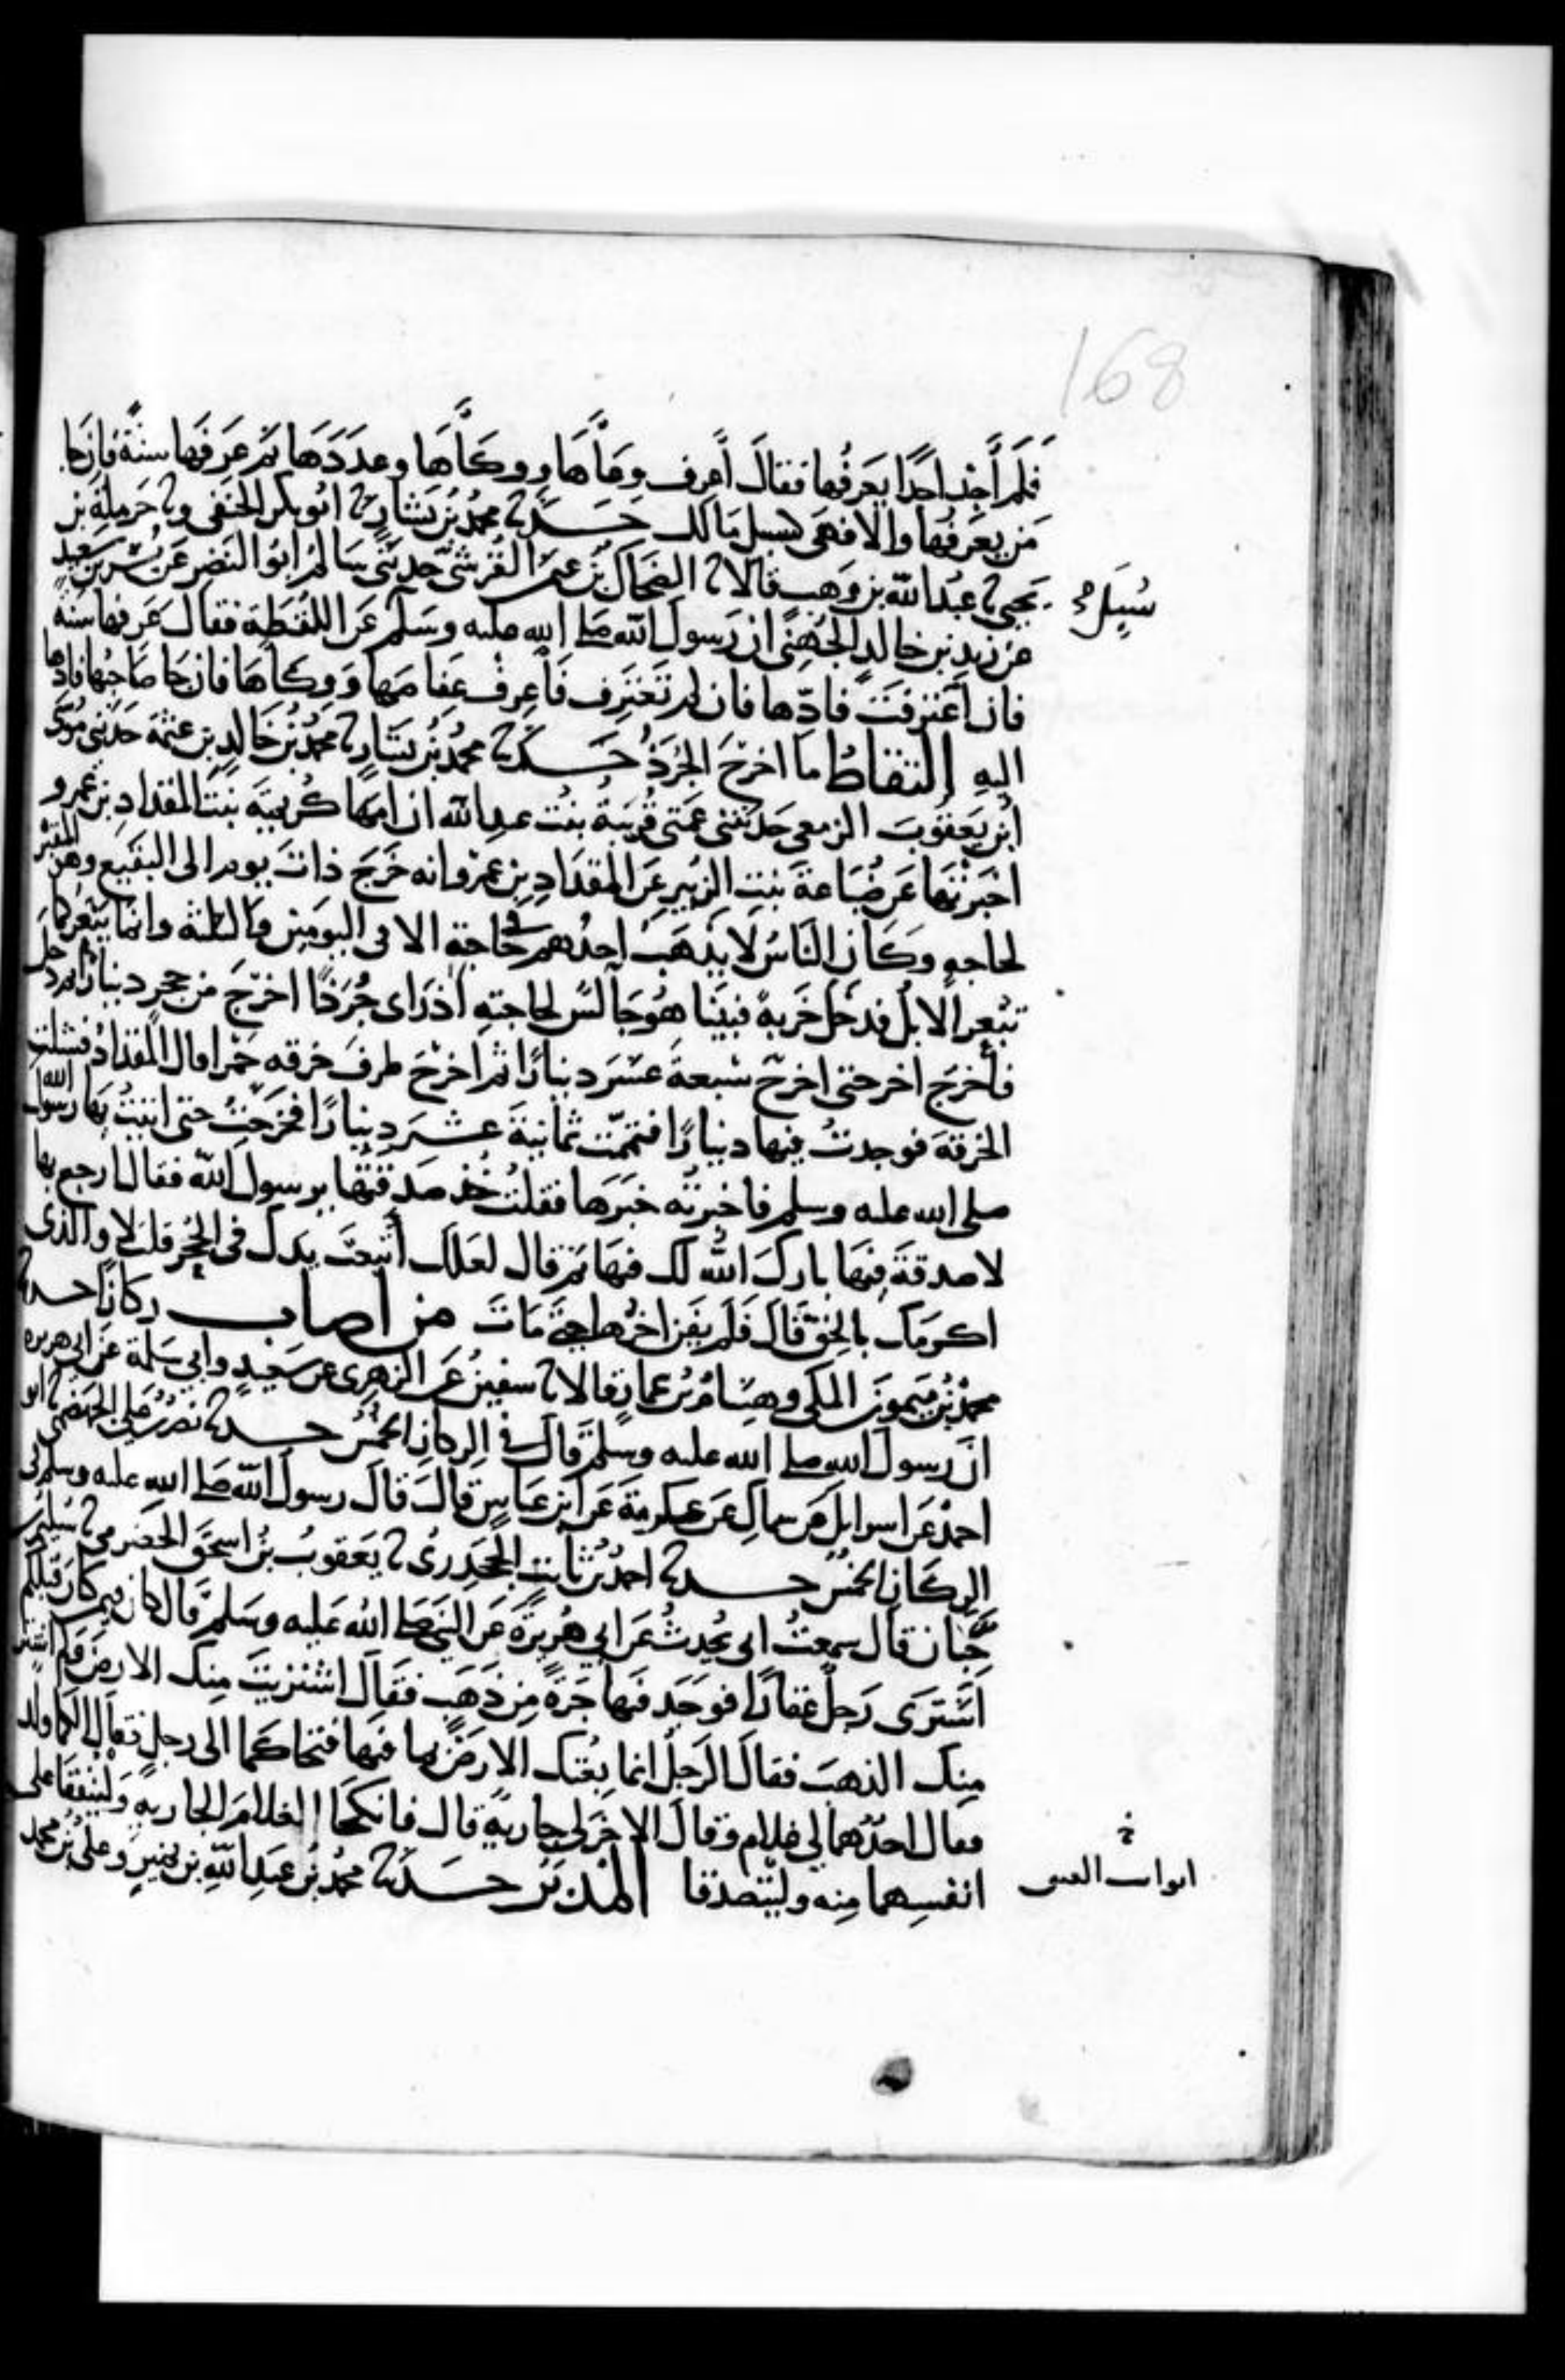 168
فلم أجد احدا يعرفها فقال أعرف وعاها ووكاها وعددها ثم عرفها سنة فان جا
من يعرفها والا فهى كسبيل مالك حدثنا محمد بن بشار ثنا ابو بكر الحنفى وثنا حرملة بن
يحيى ثنا عبد الله بن وهب قالا ثنا الضحاك بن عثمن القرشى حدثنى سالم ابو النضر عن بسر بن سعيد
سيل
عن زيد بن خالد الجهنى ان رسول الله صلى الله عليه وسلم عن اللقطة فقال عرفها سنة
فان اعترفت فادها فان لم تعترف فاعرف عفاصها ووكاها فان جا صاحبها فادها
اليه التقاط ما اخرج الجرذ حدثنا محمد بن بشار ثنا محمد بن خالد بن عثمة حدثنى موسى
ابن يعقوب الزمعى حدثتنى عمتى قريبة بنت عبد الله ان امها كريمة بنت المقداد بن عمرو
اخبرتها عن ضباعة بنت الزبير عن المقداد بن عمرو انه خرج ذات يوم الى البقيع وهو المقبرة
لحاجه وكان الناس لا يذهب احدهم فى حاجة الا فى اليومين والثلثة وانما يبعر كما
تبعر الابل فدخل خربة فبينا هو جالس لحاجته اذ راى جرذا اخرج من جحر دينارا ثم دخل
فأخرج اخر حتى اخرج سبعة عشر دينارا ثم اخرج طرف خرقه حمرا قال المقداد فسللت
الخرقة فوجدت فيها دينارا فتمت ثمانية عشر دينارا فخرجت حتى اتيت بها رسول الله
صلى الله عليه وسلم فاخبرته خبرها فقلت خذ صدقتها يرسول الله فقال ارجع بها
لا صدقة فيها بارك الله لك فيها ثم قال لعلك أتبعت يدك فى الجحر قلت لا والذى
اكرمك بالحق قال فلم يفن اخرها حتى مات من اصاب ركازا حدثنا
محمد بن ميمون المكى وهشام بن عمار قالا ثنا سفين عن الزهرى عن سعيد وابي سلمة عن ابي هريره
ان رسول الله صلى الله عليه وسلم قال فى الركاز الخمس حدثنا نصر بن على الجهضمى ثنا ابو
احمد عن اسرايل عن سماك عن عكرمة عن ابن عباس قال قال رسول الله صلى الله عليه وسلم فى
الركاز الخمس حدثنا احمد بن ثابت الجحدرى ثنا يعقوب بن اسحق الحضرمى ثنا سليم بن
حيان قال سمعت ابى يحدث عن ابي هريرة عن النبى صلى الله عليه وسلم قال كان فيمن كان قبلكم
اشترى رجل عقارا فوجد فيها جرة من ذهب فقال اشتريت منك الارض ولم اشتر
منك الذهب فقال الرجل انما بعتك الارض بما فيها فتحاكما الى رجل فقال الكما ولد
فقال احدهما لى غلام وقال الاخر لى جارية قال فانكحا الغلام الجارية ولينفقا على
انفسهما منه وليتصدقا المدبر حدثنا محمد بن عبد الله بن نمير وعلى بن محمد
خ
ابواب العتق